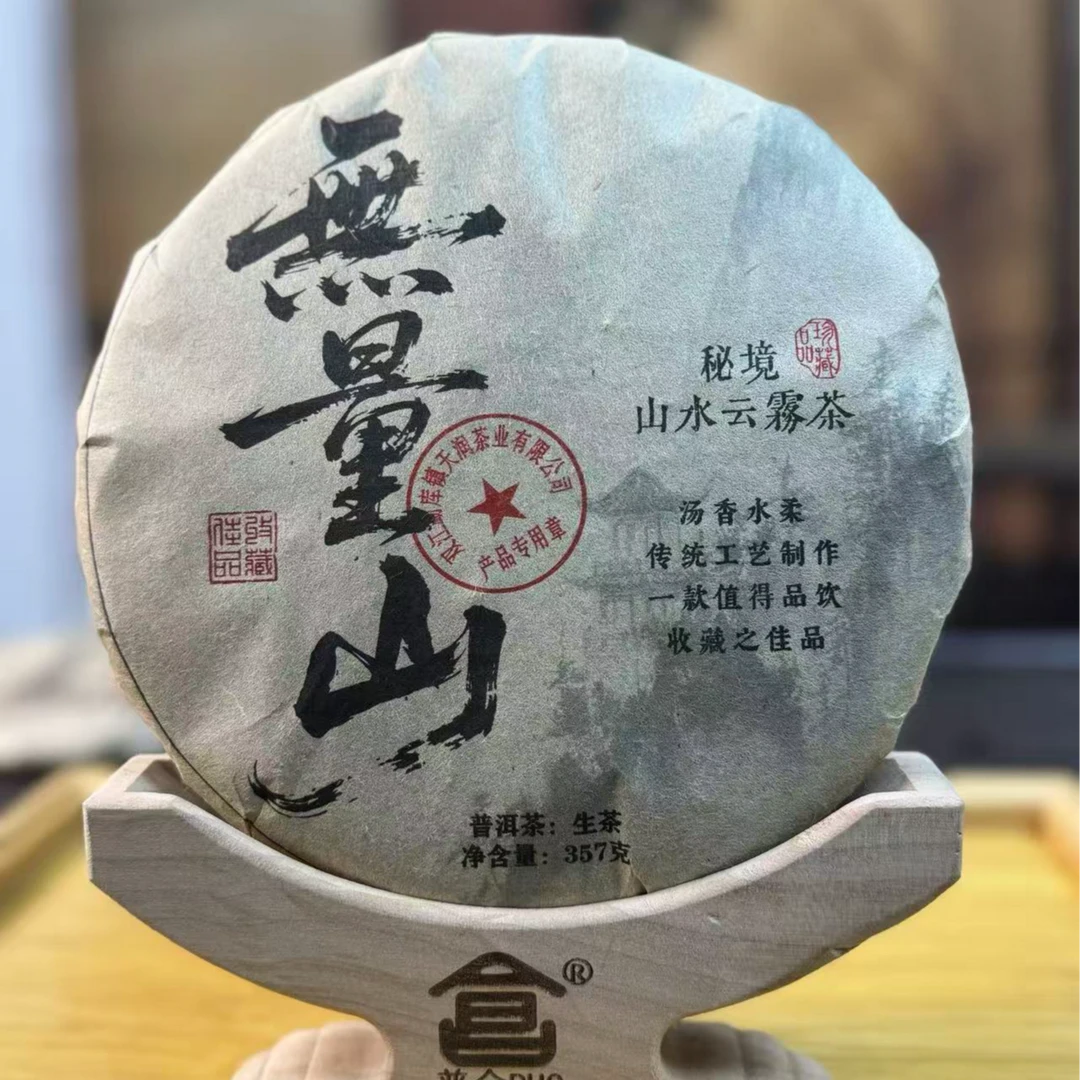 無量山
收藏佳品
双江勐库镇天润茶业有限公司
产品专用章
秘境
珍藏品
山水云霧茶
汤香水柔
传统工艺制作
一款值得品饮
收藏之佳品
普洱茶：生茶
净含量：357克
仓®